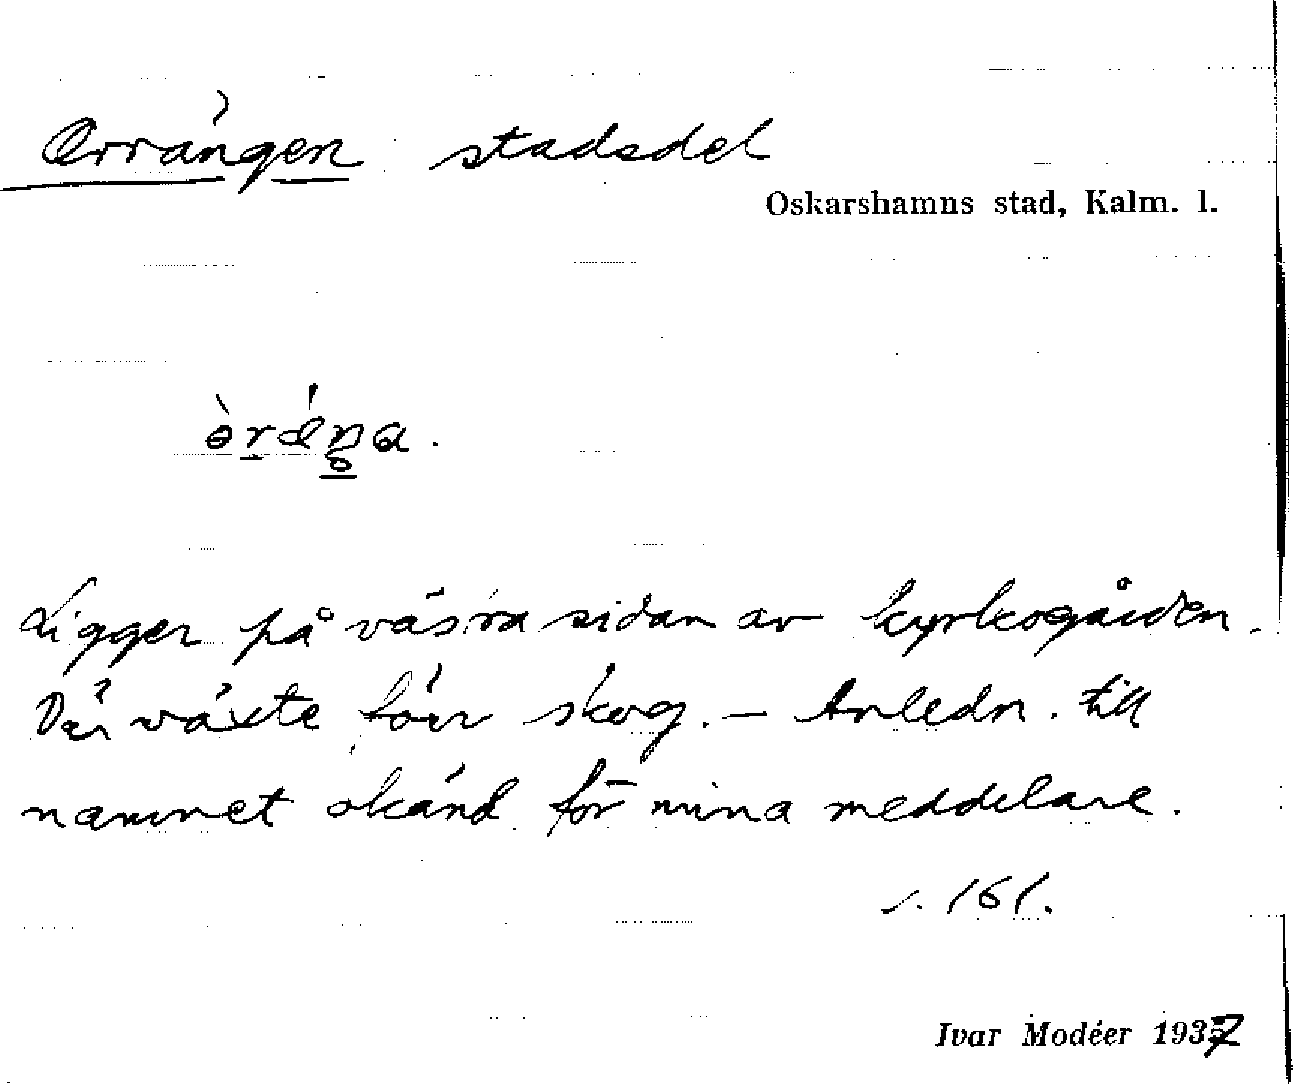 Orrängen stadsdel
Oskarshamns stad, Kalm. l.
Ligger på västra sidan av kyrkogården.
Där växte förr skog. – Anledn. till
namnet okänd för mina meddelare.
s. 161.
Ivar Modéer 1937